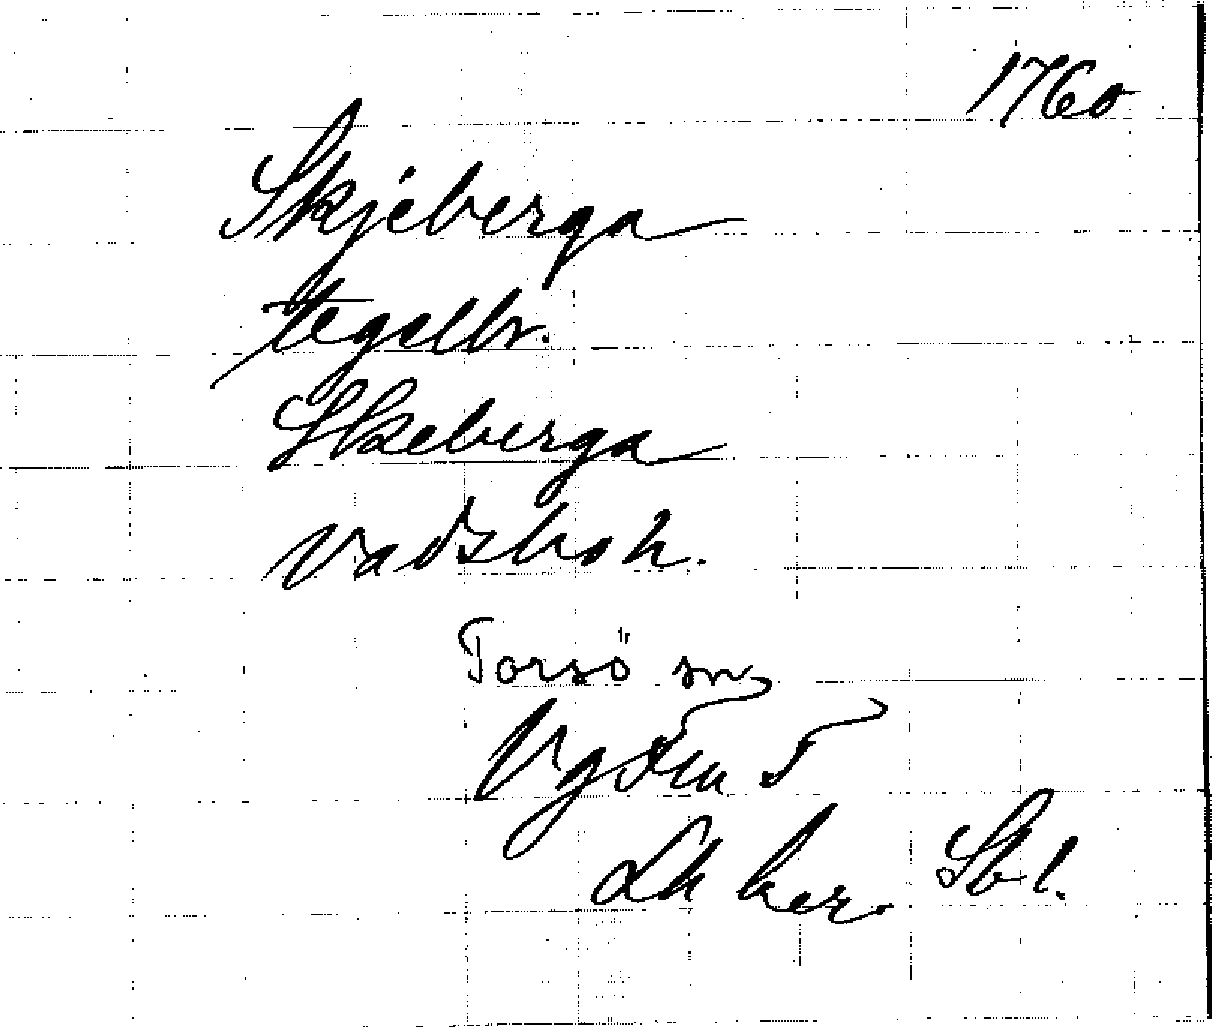 1760
Skjeberga
tegelbr.
Skeberga
Vadsboh.
Torsö sn
Vg
Lh ber. Sbl.